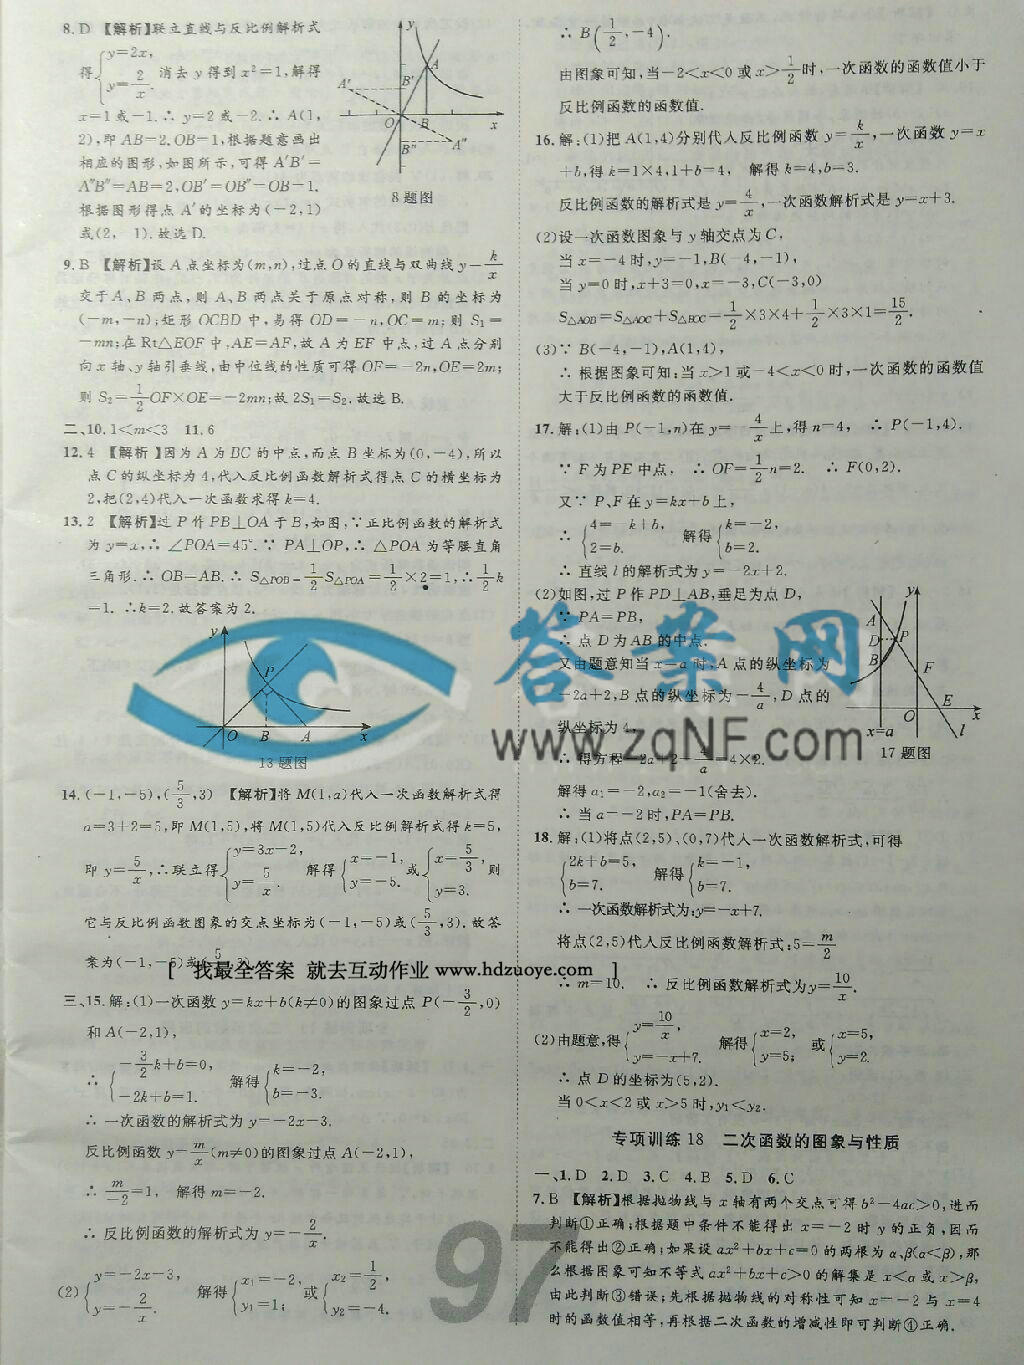 8. D 【解析】联立直线与反比例解析式
得{y=2x, y=2/x. 消去 y 得到 x²=1,解得
x=1或-1.∴y=2或-2.∴A(1,
2),即AB=2,OB=1,根据题意画出
相应的图形,如图所示,可得 A′B′=
A″B″=AB=2,OB′=OB″=OB=1,
根据图形得点 A′的坐标为(-2,1)
或(2,-1).故选D.
8题图
9. B 【解析】设A点坐标为(m,n),过点O的直线与双曲线y=k/x
交于A、B两点,则 A、B 两点关于原点对称,则 B 的坐标为
(-m,-n);矩形 OCBD 中,易得 OD=-n,OC=m;则 S₁=
-mn;在Rt△EOF中,AE=AF,故 A 为 EF 中点,过 A 点分别
向 x 轴、y 轴引垂线,由中位线的性质可得OF=-2n,OE=2m;
则 S₂=1/2 OF×OE=-2mn;故 2S₁=S₂.故选 B.
二、10. 1<m<3 11. 6
12. 4 【解析】因为 A 为 BC 的中点,而点 B 坐标为(0,-4),所以
点 C 的纵坐标为 4,代入反比例函数解析式得点 C 的横坐标为
2,把(2,4)代入一次函数求得 k=4.
13. 2 【解析】过 P 作 PB⊥OA 于 B,如图,∵正比例函数的解析式
为 y=x,∴∠POA=45°.∵PA⊥OP,∴△POA 为等腰直角
三角形.∴OB=AB.∴S△POB=1/2 S△POA=1/2×2=1,∴1/2 k
=1. ∴k=2.故答案为2.
13题图
14. (-1,-5),(5/3,3) 【解析】将M(1,a)代入一次函数解析式得
a=3+2=5,即M(1,5),将M(1,5)代入反比例解析式得k=5,
即 y=5/x,∴联立得{y=3x-2, y=5/x. 解得{x=-1, y=-5. 或{x=5/3, y=3. 则
它与反比例函数图象的交点坐标为(-1,-5)或(5/3,3).故答
案为(-1,-5)或(5/3,3).
[ 找最全答案 就去互动作业 www.hdzuoye.com ]
三、15.解:(1)一次函数 y=kx+b(k≠0)的图象过点 P(-3/2,0)
和 A(-2,1),
∴{-3/2 k+b=0, -2k+b=1. 解得{k=-2, b=-3.
∴一次函数的解析式为 y=-2x-3.
反比例函数 y=m/x(m≠0)的图象过点A(-2,1),
∴m/-2=1, 解得m=-2.
∴反比例函数的解析式为 y=-2/x.
(2){y=-2x-3, y=-2/x. 解得{x₁=-2, y₁=1; 或{x₂=1/2, y₂=-4.
∴B(1/2,-4).
由图象可知,当-2<x<0或x>1/2时,一次函数的函数值小于
反比例函数的函数值.
16.解:(1)把 A(1,4)分别代入反比例函数 y=k/x,一次函数 y=x
+b,得k=1×4,1+b=4, 解得k=4,b=3.
反比例函数的解析式是 y=4/x,一次函数解析式是 y=x+3.
(2)设一次函数图象与y轴交点为C,
当x=-4时,y=-1,B(-4,-1),
当 y=0时,x+3=0,x=-3,C(-3,0)
S△AOB=S△AOC+S△BOC=1/2×3×4+1/2×3×1=15/2.
(3)∵B(-4,-1),A(1,4),
∴根据图象可知:当x>1或-4<x<0时,一次函数的函数值
大于反比例函数的函数值.
17.解:(1)由 P(-1,n)在y=-4/x上,得n=4, ∴P(-1,4).
∵F为PE中点, ∴OF=1/2 n=2. ∴F(0,2).
又∵P、F在y=kx+b上,
∴{4=-k+b, 2=b. 解得{k=-2, b=2.
∴直线 l 的解析式为 y=-2x+2.
(2)如图,过 P 作 PD⊥AB,垂足为点 D,
∵PA=PB,
∴点 D 为AB的中点.
又由题意知当x=a时,A点的纵坐标为
-2a+2,B点的纵坐标为-4/a,D点的
纵坐标为4,
∴得方程-2a+2-4/a=4×2.
解得a₁=-2,a₂=-1(舍去).
∴当a=-2时,PA=PB.
17题图
18.解:(1)将点(2,5)、(0,7)代入一次函数解析式,可得
{2k+b=5, b=7. 解得{k=-1, b=7.
∴一次函数解析式为:y=-x+7.
将点(2,5)代入反比例函数解析式:5=m/2
∴m=10. ∴反比例函数解析式为y=10/x.
(2)由题意,得{y=10/x, y=-x+7. 解得{x=2, y=5; 或{x=5, y=2.
∴点 D 的坐标为(5,2).
当0<x<2或x>5时,y₁<y₂.
专项训练18 二次函数的图象与性质
一、1. D 2. D 3. C 4. B 5. D 6. C
7. B 【解析】根据抛物线与 x 轴有两个交点可得 b²-4ac>0,进而
判断①正确;根据题中条件不能得出 x=-2 时 y 的正负,因而
不能得出②正确;如果设 ax²+bx+c=0 的两根为 α、β(α<β),那
么根据图象可知不等式 ax²+bx+c>0 的解集是 x<α 或 x>β,
由此判断③错误;先根据抛物线的对称性可知 x=-2 与 x=4
时的函数值相等,再根据二次函数的增减性即可判断④正确.
答案网
www.zqNF.com
97